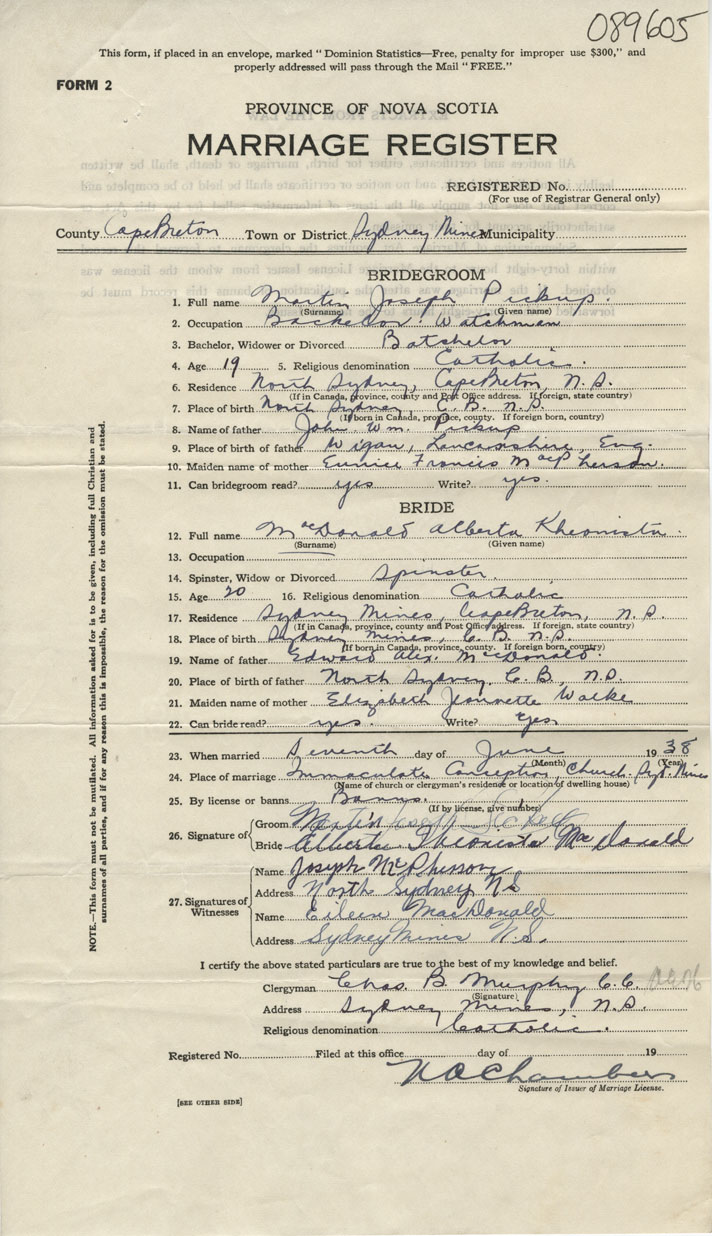 089605
This form, if placed in an envelope, marked "Dominion Statistics—Free, penalty for improper use $300," and
properly addressed will pass through the Mail "FREE."
FORM 2
PROVINCE OF NOVA SCOTIA
MARRIAGE REGISTER
REGISTERED No.
(For use of Registrar General only)
County Cape Breton Town or District Sydney Mines Municipality
BRIDEGROOM
1. Full name Martin Joseph Pickup.
(Surname) (Given name)
2. Occupation Bachelor. Watchman
3. Bachelor, Widower or Divorced Batshelor
4. Age 19 5. Religious denomination Catholic.
6. Residence North Sydney, Cape Breton, N.S.
(If in Canada, province, county and Post Office address. If foreign, state country)
7. Place of birth North Sydney C.B. N.S.
(If born in Canada, province, county. If foreign born, country)
8. Name of father John Wm. Pickup
9. Place of birth of father Wigan, Lancashire, Eng.
10. Maiden name of mother Eunice Francis MacPherson.
11. Can bridegroom read? yes Write? yes.
BRIDE
12. Full name MacDonald Alberta Kheonista.
(Surname) (Given name)
13. Occupation
14. Spinster, Widow or Divorced Spinster.
15. Age 20 16. Religious denomination Catholic
17. Residence Sydney Mines, Cape Breton, N.S.
(If in Canada, province, county and Post Office address. If foreign, state country)
18. Place of birth Sydney Mines, C.B. N.S.
(If born in Canada, province, county. If foreign born, country)
19. Name of father Edward Alex. McDonald
20. Place of birth of father North Sydney, C.B., N.S.
21. Maiden name of mother Elizabeth Jeannette Walke
22. Can bride read? yes. Write? yes
23. When married Seventh day of June 1938
(Month) (Year)
24. Place of marriage Immaculate Conception Church, Syd. Mines
(Name of church or clergyman's residence or location of dwelling house)
25. By license or banns Banns.
(If by license, give number)
26. Signature of Groom Martin Joseph Pickup
Bride Alberta Theonista MacDonald
27. Signatures of Witnesses
Name Joseph McPherson
Address North Sydney NS
Name Eileen MacDonald
Address Sydney Mines N.S.
I certify the above stated particulars are true to the best of my knowledge and belief.
Clergyman Chas. B. Murphy C.C.
(Signature)
Address Sydney Mines, N.S.
Religious denomination Catholic.
Registered No. Filed at this office day of 19
Chambers
Signature of Issuer of Marriage License.
[SEE OTHER SIDE]
NOTE.—This form must not be mutilated. All information asked for is to be given, including full Christian and
surnames of all parties, and if for any reason this is impossible, the reason for the omission must be stated.